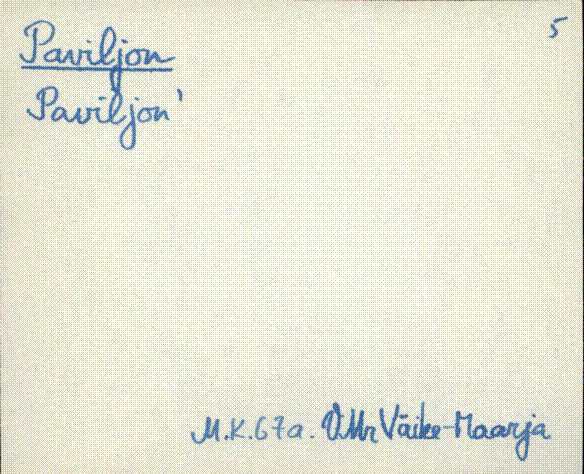 5
Paviljon
Paviljon'
M.K.67a. VMr Väike-Maarja